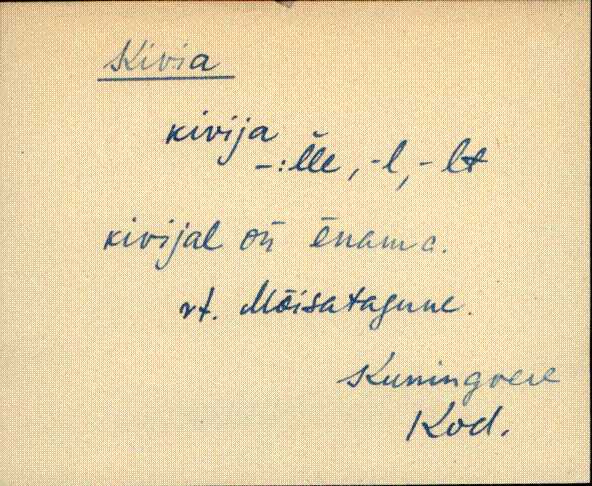 Kivia
kivija
-:lle, -l, -lt
kivijal on ēnama.
vt. Mõisatagune.
Kuningvere
Kod.